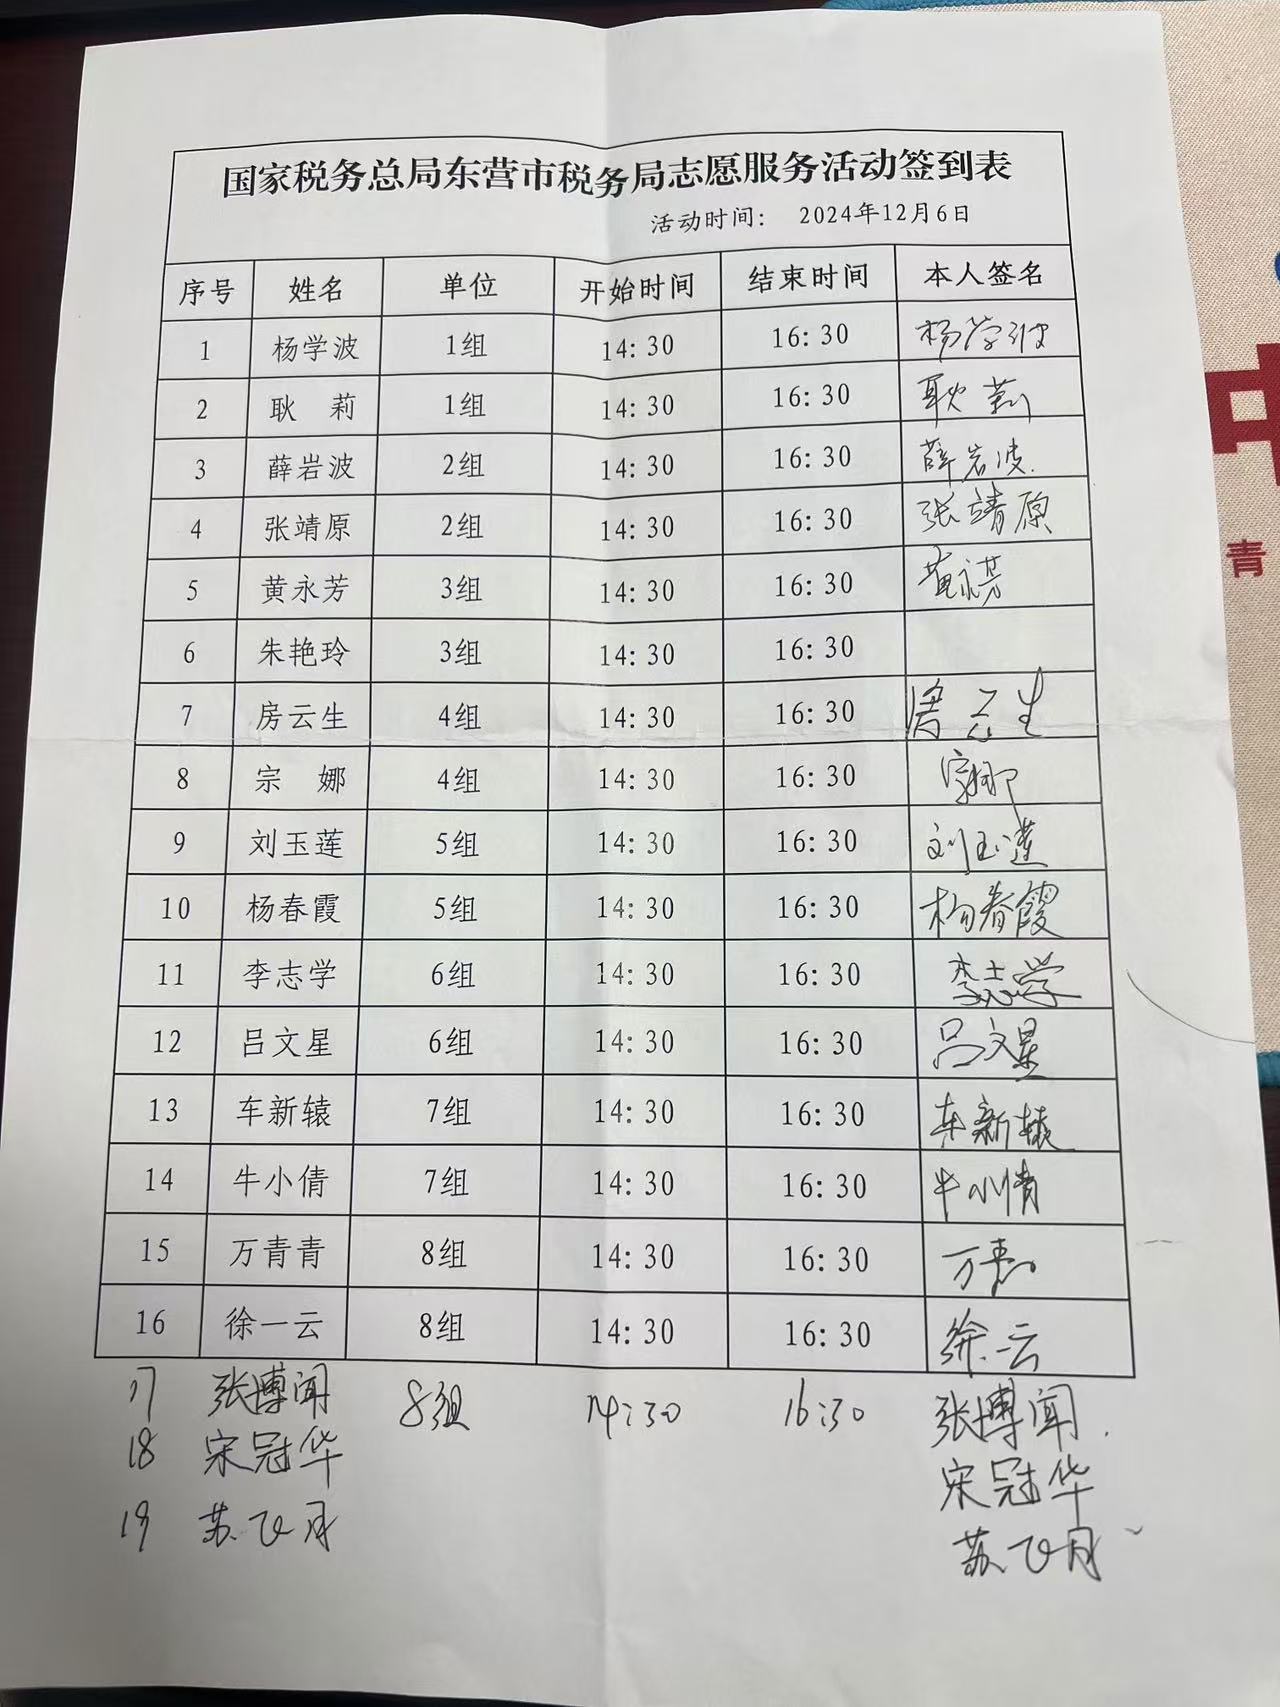 国家税务总局东营市税务局志愿服务活动签到表
活动时间： 2024年12月6日
序号 姓名 单位 开始时间 结束时间 本人签名
1 杨学波 1组 14:30 16:30 杨学波
2 耿 莉 1组 14:30 16:30 耿莉
3 薛岩波 2组 14:30 16:30 薛岩波
4 张靖原 2组 14:30 16:30 张靖原
5 黄永芳 3组 14:30 16:30 黄永芳
6 朱艳玲 3组 14:30 16:30
7 房云生 4组 14:30 16:30 房云生
8 宗 娜 4组 14:30 16:30 宗娜
9 刘玉莲 5组 14:30 16:30 刘玉莲
10 杨春霞 5组 14:30 16:30 杨春霞
11 李志学 6组 14:30 16:30 李志学
12 吕文星 6组 14:30 16:30 吕文星
13 车新辕 7组 14:30 16:30 车新辕
14 牛小倩 7组 14:30 16:30 牛小倩
15 万青青 8组 14:30 16:30 万青青
16 徐一云 8组 14:30 16:30 徐一云
17 张博闻 8组 14:30 16:30 张博闻
18 宋冠华 宋冠华
19 苏飞月 苏飞月
青